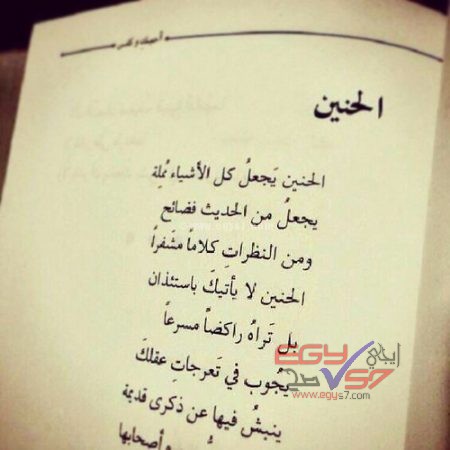 أحببتك وكفى
الحنين
الحنين يَجعلُ كل الأشياء مُملِة
يجعلُ من الحديث فضائح
ومن النظراتِ كلاماً مشَفراً
الحنين لا يأتيكَ باستئذان
بل تَراهُ راكضاً مسرعاً
يَجُوب في تَعرجاتِ عقلكَ
ينبشُ فيها عن ذكرى قديمة
وأصحابها
EGY
إيجي
S7
صح
www.egys7.com